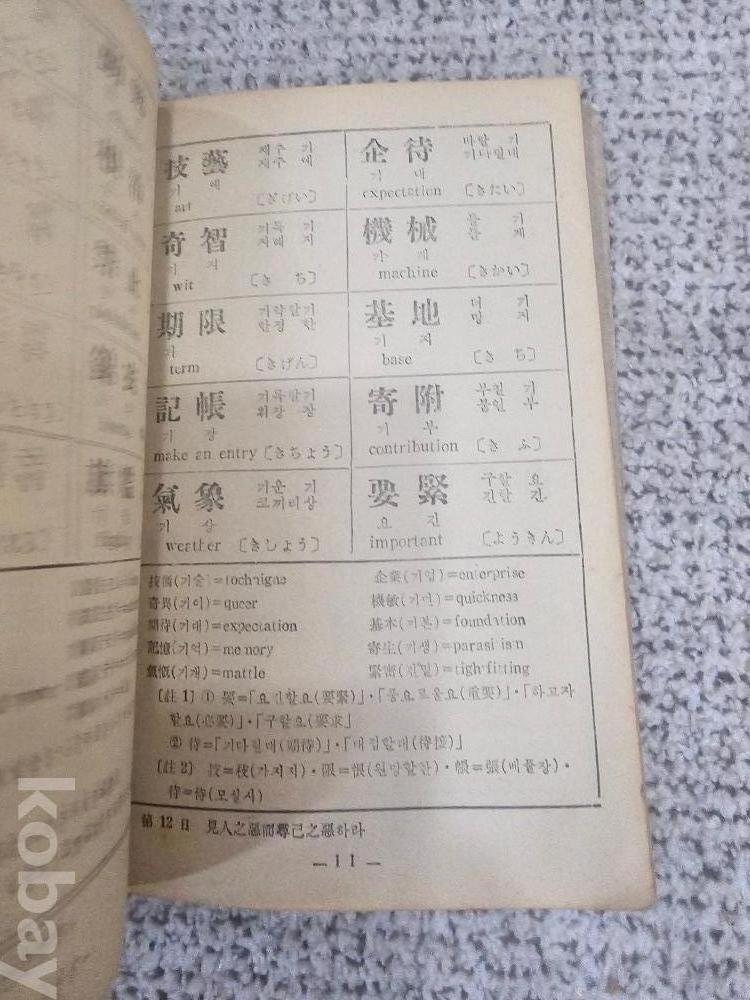 技藝 재주 기 재주 예
기 예
art 〔ぎげい〕
企待 바랄 기 기다릴대
기 대
expectation 〔きたい〕
奇智 기특 기 지혜 지
기 지
wit 〔き ち〕
機械 틀 기 틀 계
기 계
machine 〔きかい〕
期限 기약할기 한정 한
기
term 〔きげん〕
基地 터 기 땅 지
기 지
base 〔き ち〕
記帳 기록할기 휘장 장
기 장
make an entry 〔きちょう〕
寄附 부칠 기 붙일 부
기 부
contribution 〔き ふ〕
氣象 기운 기 코끼리상
기 상
weather 〔きしょう〕
要緊 구할 요 긴할 긴
요 긴
important 〔ようきん〕
技術(기술)=technigae
企業(기업)=enterprise
奇異(기이)=queer
機敏(기민)=quickness
期待(기대)=expectation
基本(기본)=foundation
記憶(기억)=memory
寄生(기생)=parasitism
氣慨(기개)=mattle
緊密(긴밀)=tigh-fitting
〔註 1〕 ① 要=「요긴할요(要緊)」·「중요로울요(重要)」·「하고자
할요(必要)」·「구할요(要求)」
② 待=「기다릴대(期待)」·「대접할대(待接)」
〔註 2〕 技=枝(가지지)·限=恨(원망할한)·帳=張(베풀장)·
待=侍(모실시)
第 12 日 見人之惡而尋己之惡하라
— 11 —
kobay